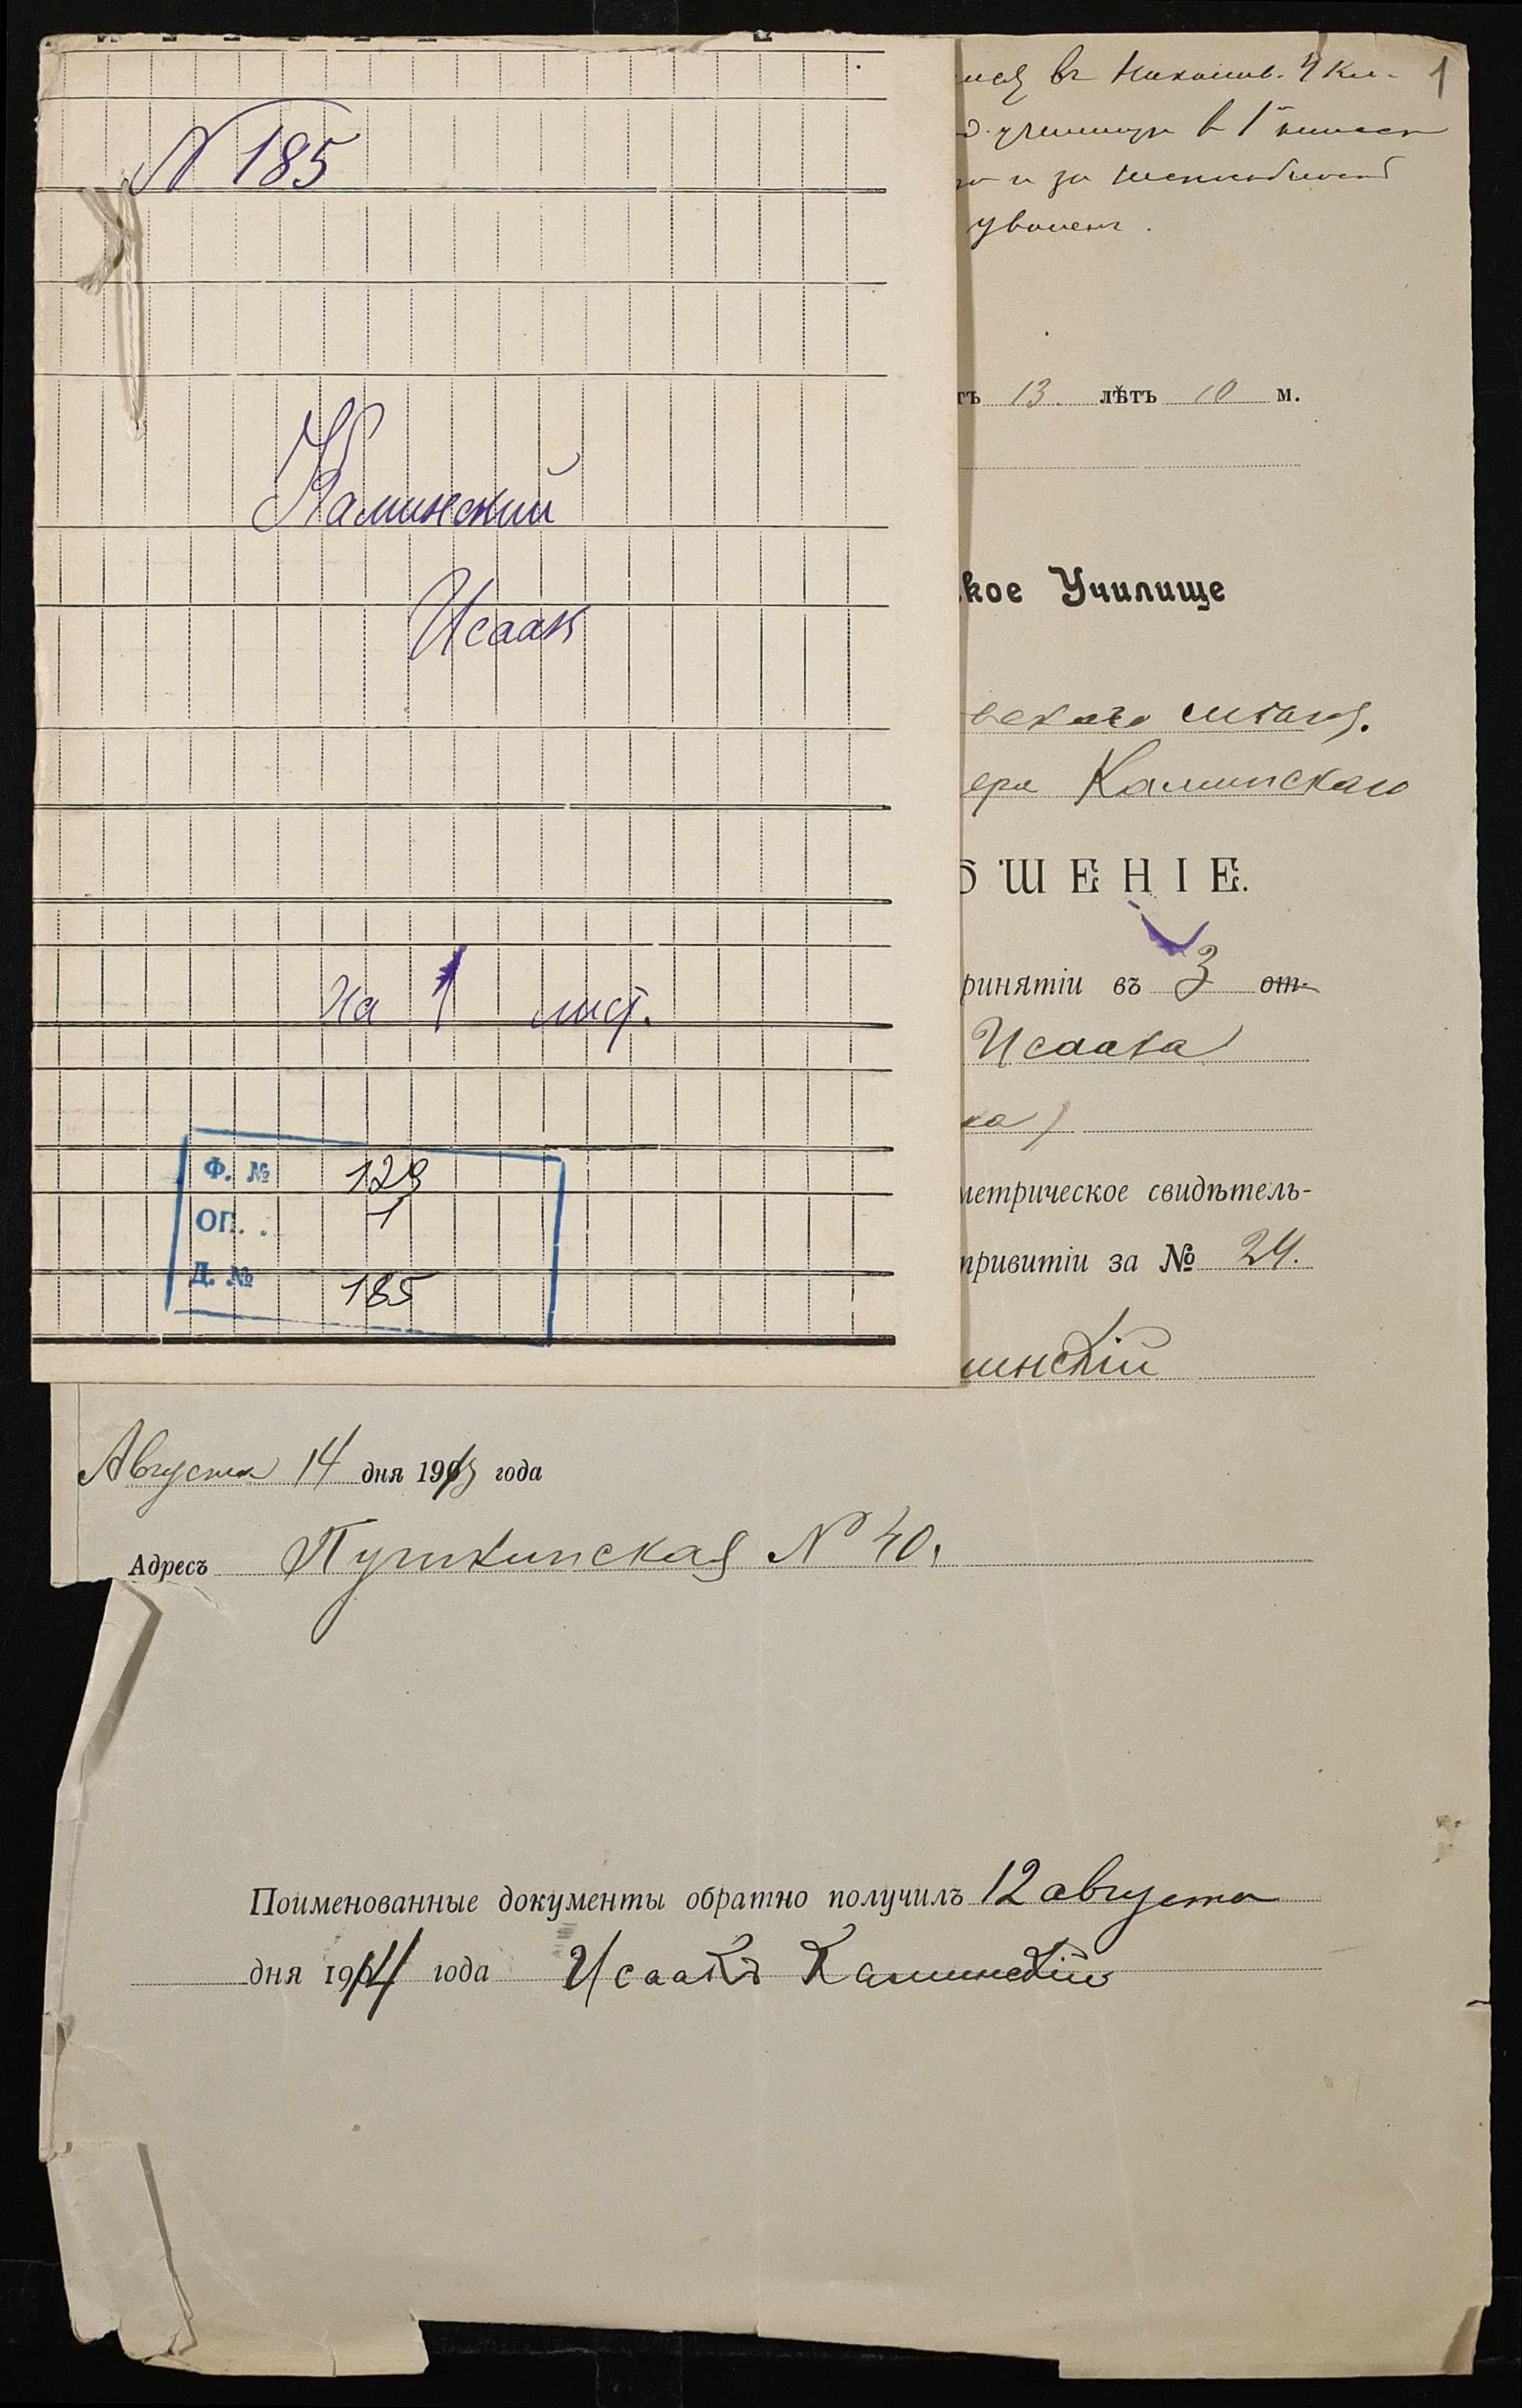 N 185
Каминский
Исаак
на 1 лист.
Ф. № 129
ОП. . 1
Д. № 185
въ 4 Кл. 1
училищѣ в 1
и за
уволенъ.
тъ 13. лѣтъ 10 м.
кое Училище
вскаго мѣщ.
ера Каминскаго
ШЕНІЕ.
ринятіи въ 3 от-
Исаака
ка)
метрическое свидѣтель-
привитіи за № 24.
минскій
Августа 14 дня 1913 года
Адресъ Пушкинская N 40.
Поименованные документы обратно получилъ 12 августа
дня 1914 года Исаакъ Каминскій